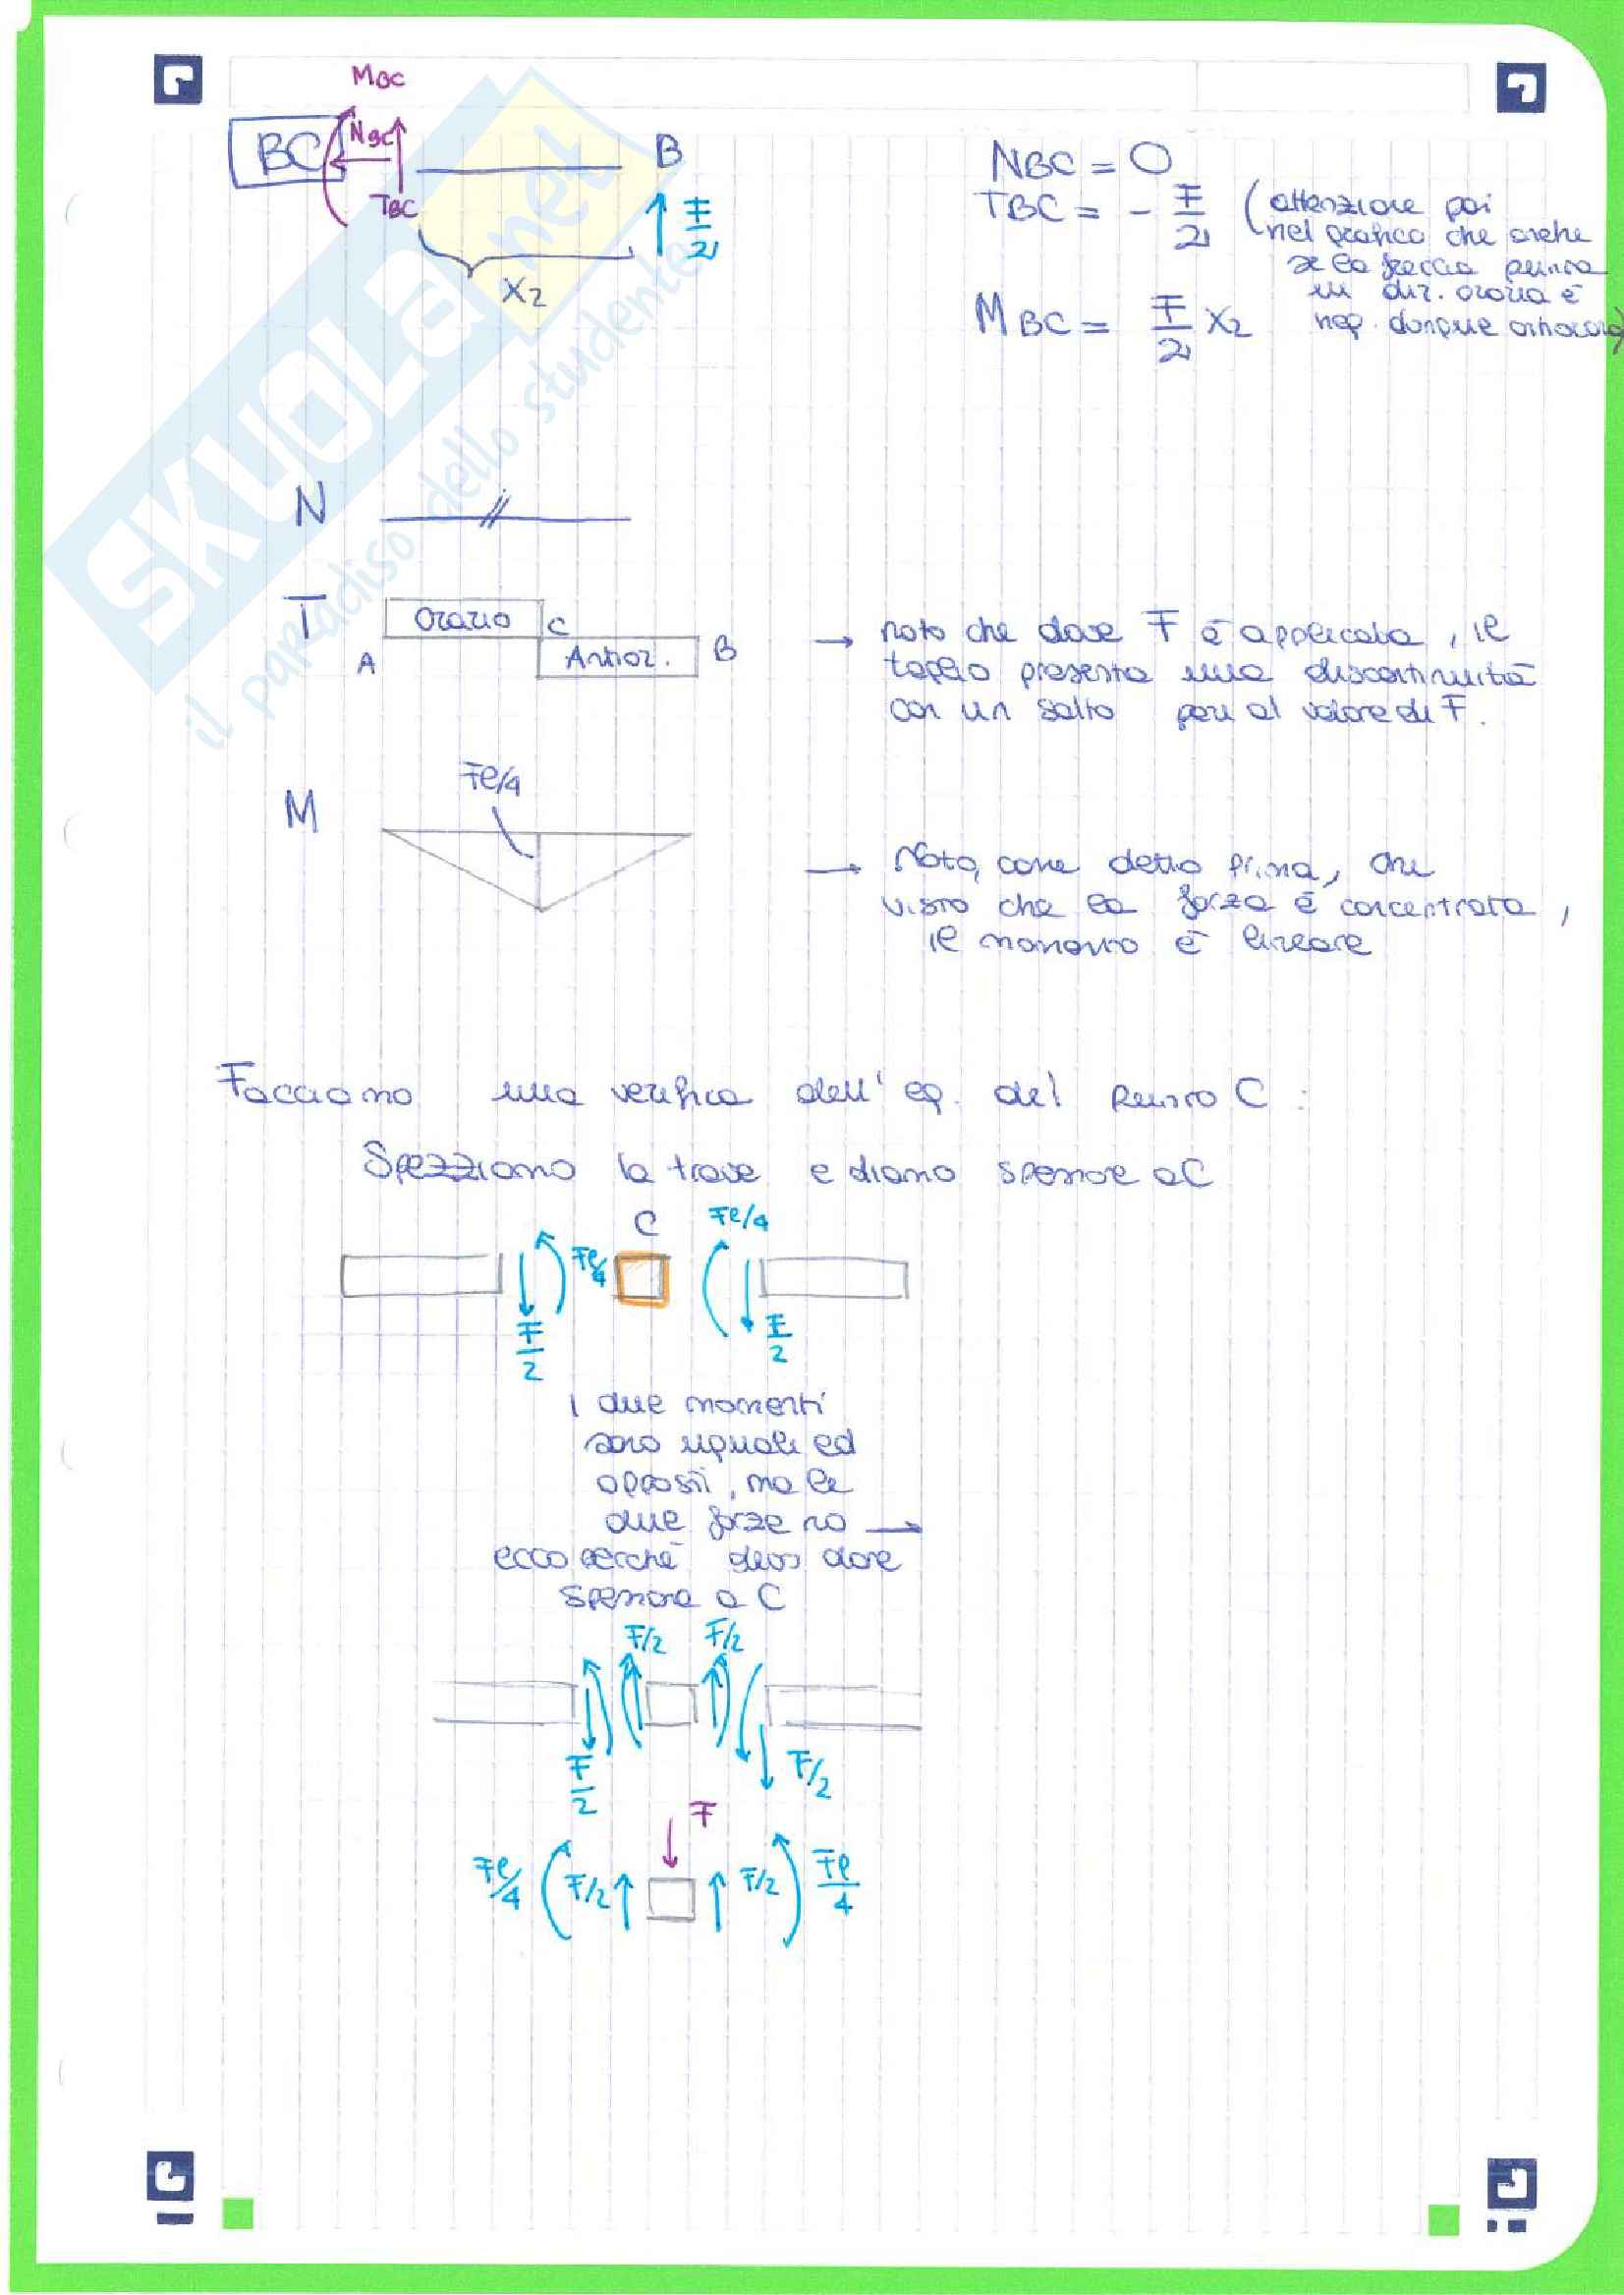 MBC
BC
NBC
TBC
B
F/2
x2
NBC = 0
TBC = - F/2 (attenzione poi
nel grafico che anche
se la freccia punta
in dir. oraria è
neg. dunque antioraria)
MBC = F/2 x2
SKUOLA.net
il paradiso dello studente
N
T
Orario
C
A
Antior.
B
→ noto che dove F è applicata, il
taglio presenta una discontinuità
con un salto pari al valore di F.
M
Fl/4
→ Noto, come detto prima, che
visto che la forza è concentrata,
il momento è lineare
Facciamo una verifica dell'eq. del punto C:
Spezziamo la trave e diamo spessore a C
C
Fl/4
Fl/4
F/2
F/2
I due momenti
sono uguali ed
opposti, ma le
due forze no →
ecco perché devo dare
spessore a C
F/2
F/2
F/2
F/2
F
Fl/4
F/2
F/2
Fl/4